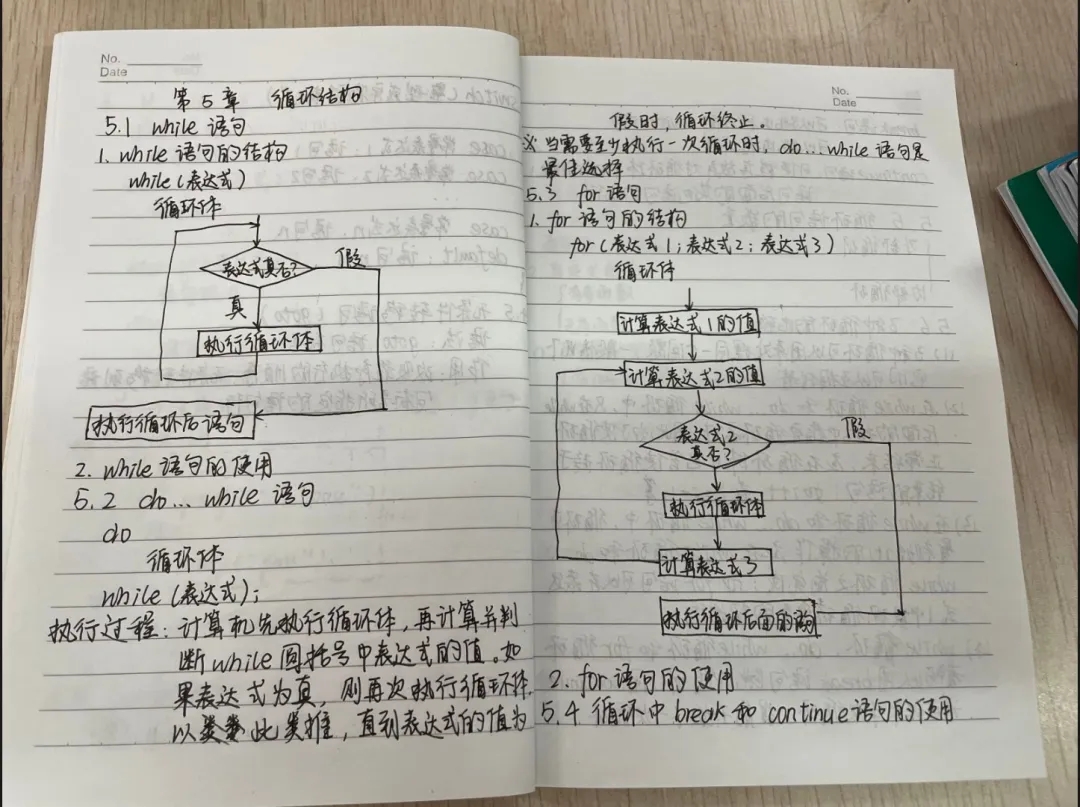 No.
Date
第5章 循环结构
5.1 while 语句
1. while 语句的结构
while(表达式)
循环体
表达式真否?
假
真
执行循环体
执行循环后语句
2. while 语句的使用
5.2 do... while 语句
do
循环体
while(表达式);
执行过程:计算机先执行循环体,再计算并判
断while圆括号中表达式的值。如
果表达式为真,则再次执行循环体,
以此类推,直到表达式的值为
No.
Date
假时,循环终止。
※ 当需要至少执行一次循环时,do...while 语句是
最佳选择
5.3 for 语句
1. for 语句的结构
for(表达式1;表达式2;表达式3)
循环体
计算表达式1的值
计算表达式2的值
表达式2
真否?
假
执行循环体
计算表达式3
执行循环后面的
2. for 语句的使用
5.4 循环中 break 和 continue 语句的使用